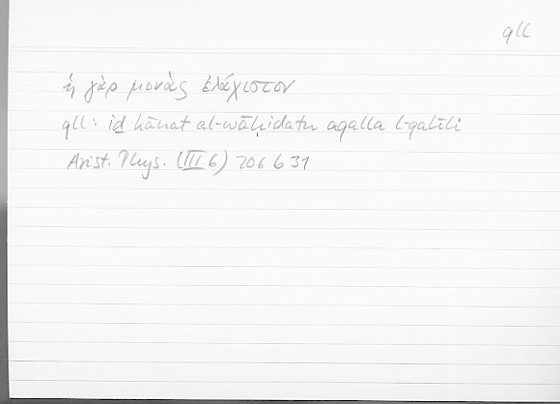 qll
ἡ γὰρ μονὰς ἐλάχιστον
qll: id̲ kānat al-wāḥidatu aqalla l-qalīli
Arist. Phys. (III 6) 206 b 31